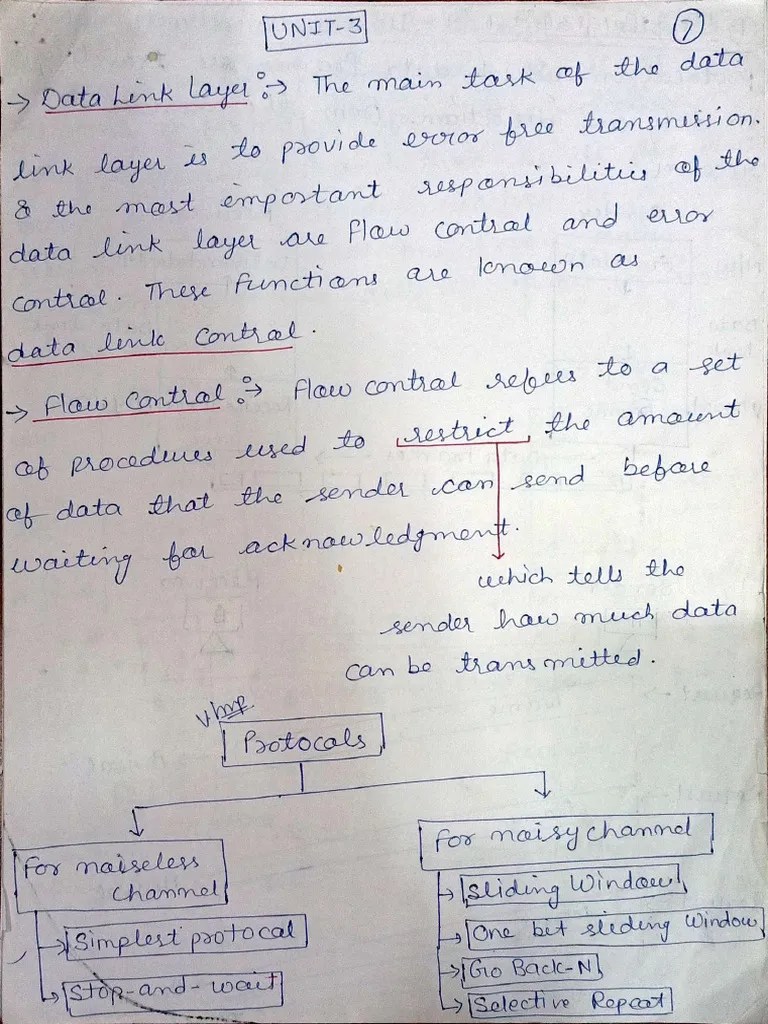 UNIT-3
7
→ Data Link Layer :→ The main task of the data
link layer is to provide error free transmission.
& the most important responsibilities of the
data link layer are flow control and error
control. These functions are known as
data link control.
→ Flow Control :→ Flow control refers to a set
of procedures used to restrict the amount
of data that the sender can send before
waiting for acknowledgment.
which tells the
sender how much data
can be transmitted.
V Imp
Protocals
For noiseless
channel
Simplest protocal
Stop-and-wait
For noisy channel
Sliding Window
One bit sliding Window
Go Back-N
Selective Repeat